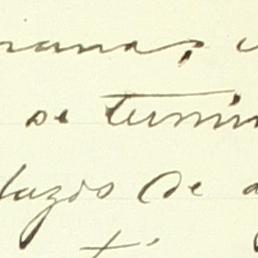 ranas,
se termi
lazos de a